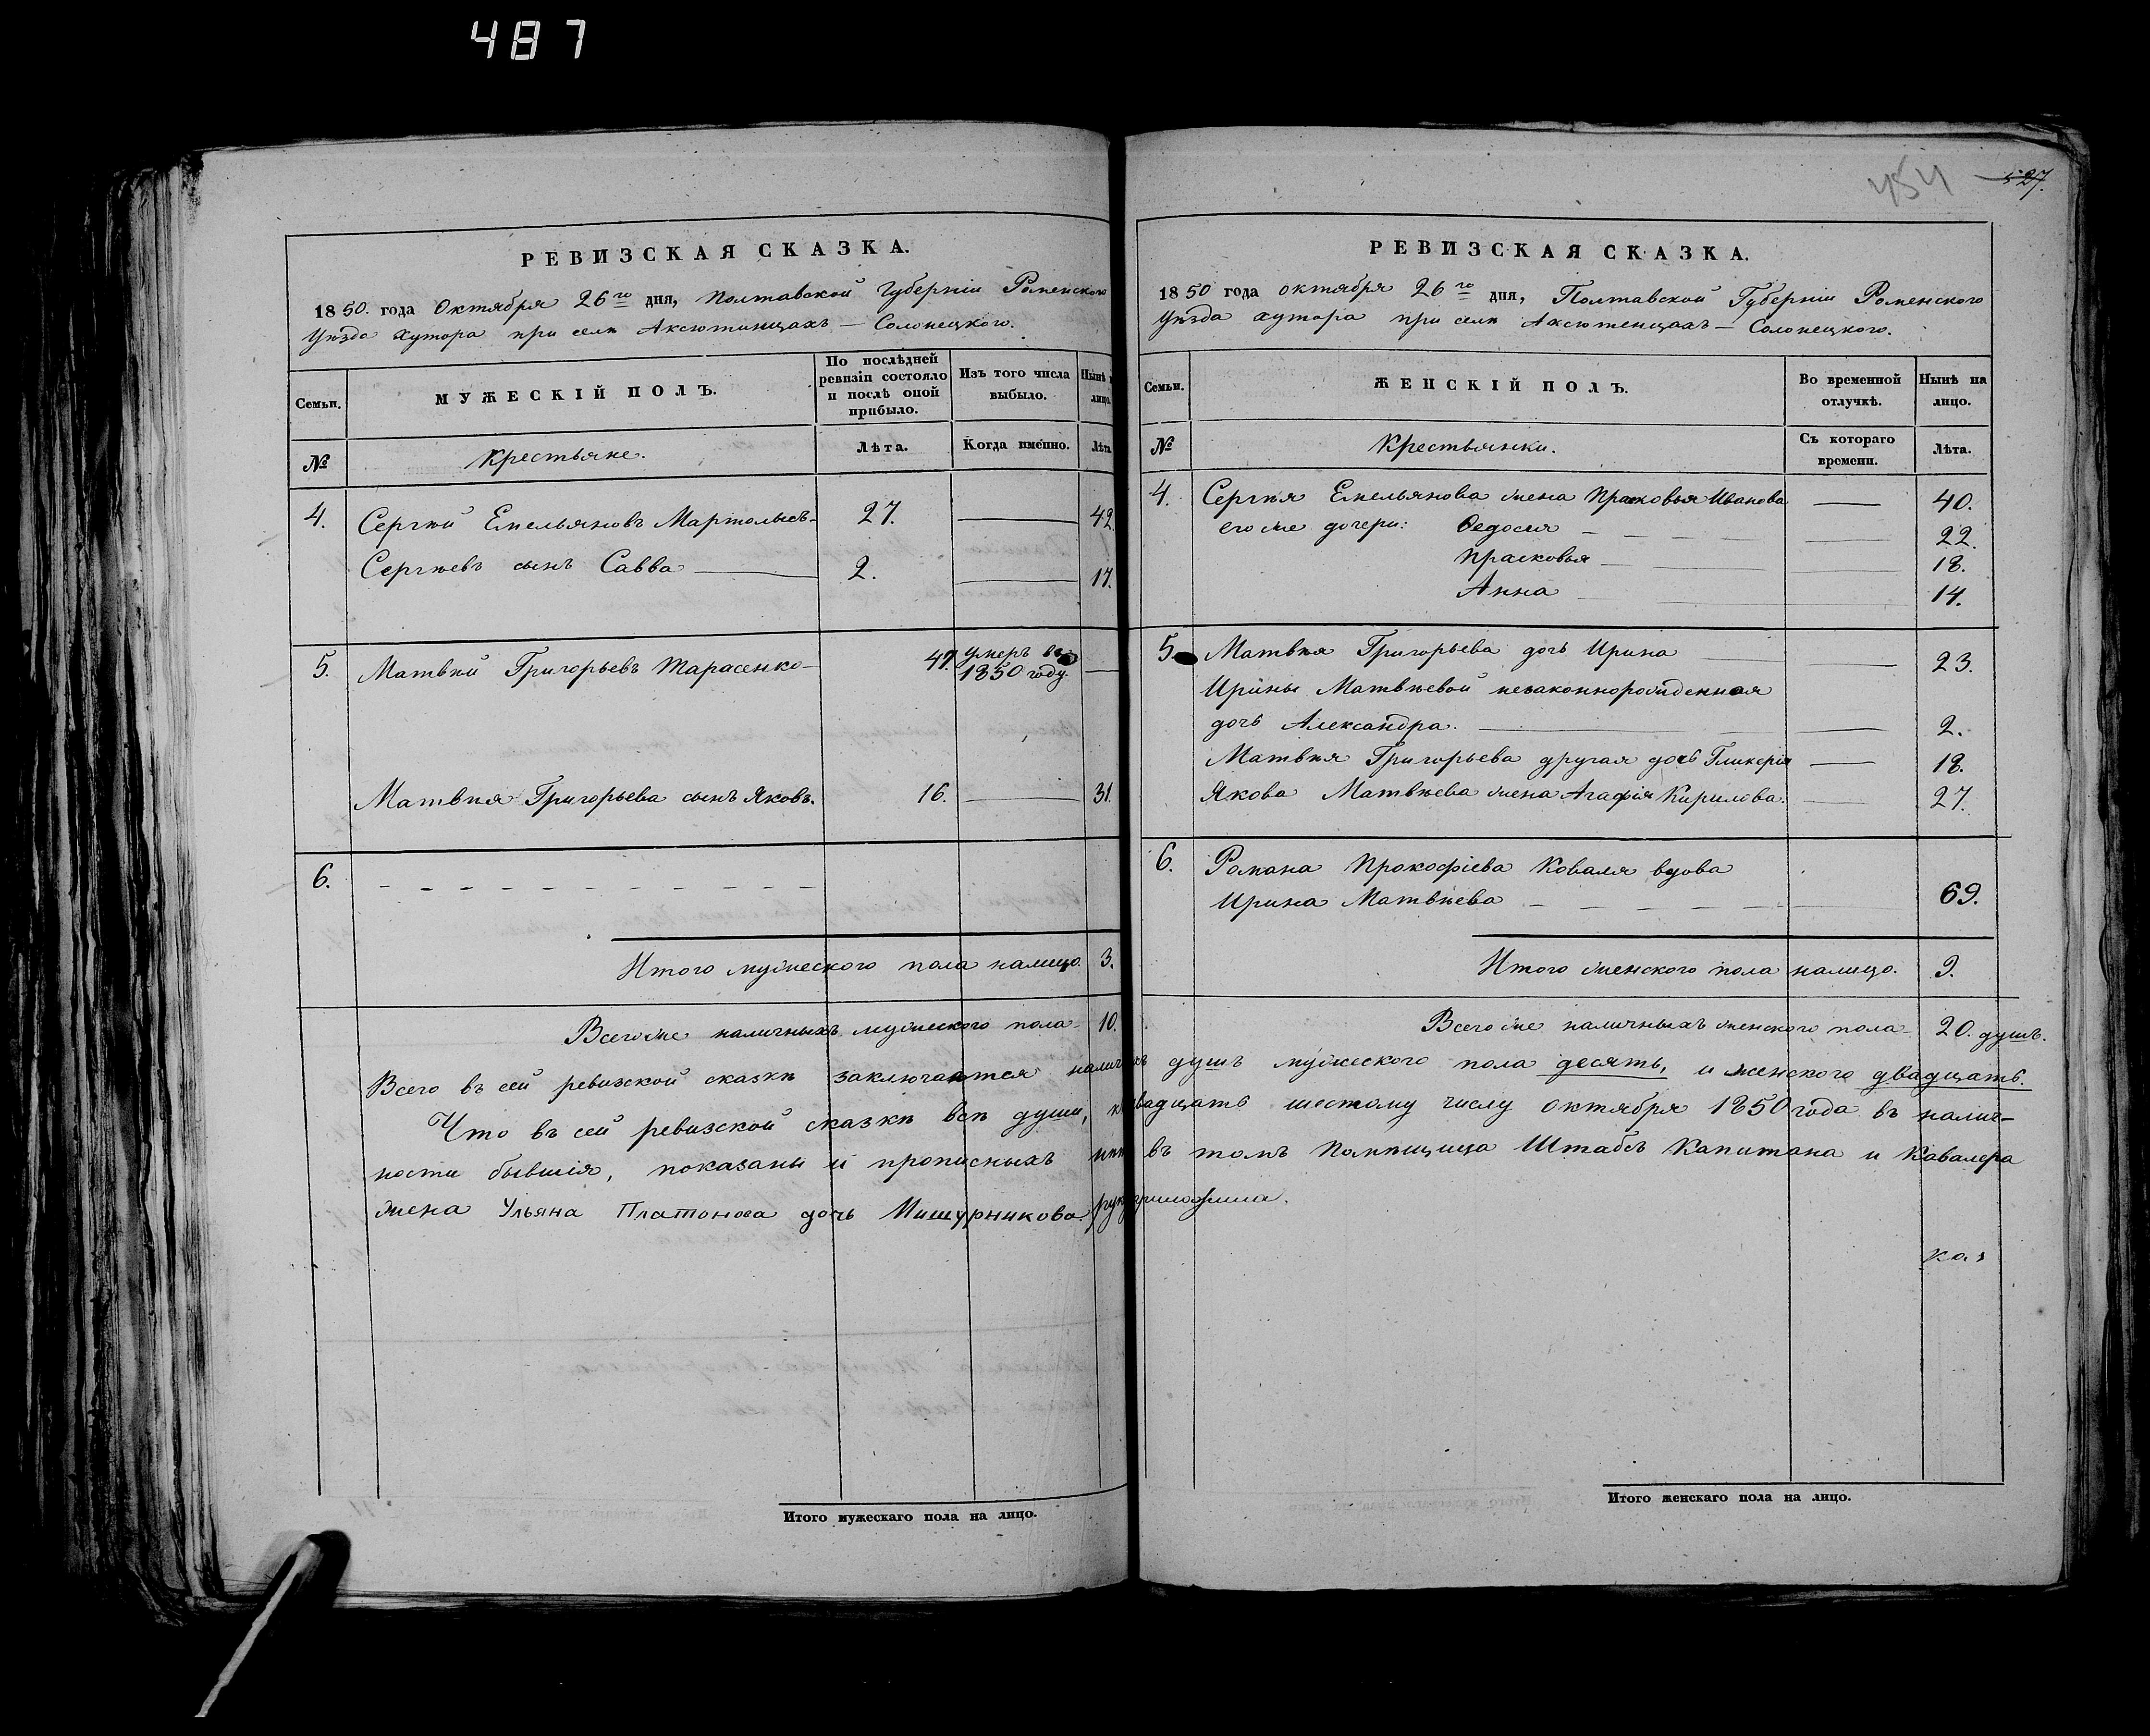 487
454 527.
РЕВИЗСКАЯ СКАЗКА.
1850. года Октября 26го дня, Полтавской Губерніи Роменского
Уѣзда Хутора при селѣ Аксютинцахъ — Солонецкого.
Семьи.
МУЖЕСКІЙ ПОЛЪ.
По послѣдней ревизіи состояло и послѣ оной прибыло.
Изъ того числа выбыло.
Нынѣ на лицо.
№
Крестьяне.
Лѣта.
Когда именно.
Лѣта.
4. Сергѣй Емельяновъ 27. — 42.
Сергѣевъ сынъ Савва — 2. — 17.
5. Матвѣй Григорьевъ Тарасенко — 47. умеръ въ 1850 году. —
Матвѣя Григорьева сынъ Яковъ. 16. — 31.
6. – – – – – – – – – – –
Итого мужеского пола налицо. 3.
Всего же наличныхъ мужеского пола 10.
РЕВИЗСКАЯ СКАЗКА.
1850 года октября 26го дня, Полтавской Губерніи Роменского
Уѣзда хутора при селѣ Аксютенцахъ — Солонецкого.
Семьи.
ЖЕНСКІЙ ПОЛЪ.
Во временной отлучкѣ.
Нынѣ на лицо.
№
Крестьянки.
Съ котораго времени.
Лѣта.
4. Сергѣя Емельянова жена Прасковья Иванова — 40.
его же дочери: Ѳедосия — 22.
Прасковья — 18.
Анна — 14.
5. Матвѣя Григорьева дочь Ирина — 23.
Ирины Матвѣевой незаконнорожденная
дочь Александра. — 2.
Матвѣя Григорьева другая дочь Гликерія — 18.
Якова Матвѣева жена Агафія Кирилова. — 27.
6. Романа Прокофіева Коваля вдова
Ирина Матвѣева – – – – – 69.
Итого женского пола налицо. 9.
Всего же наличныхъ женского пола 20. душъ.
Всего въ сей ревизской сказкѣ заключается душъ мужеского пола десять, и женского двадцать.
Что въ сей ревизской сказкѣ всѣ души, двадцать шестому числу октября 1850 года въ налич-
ности бывшія, показаны и прописныхъ нѣтъ въ томъ Помѣщица Штабсъ Капитана и Кавалера
жена Ульяна Платонова дочь Мишурникова руку приложила.
ка:
Итого мужескаго пола на лицо.
Итого женскаго пола на лицо.